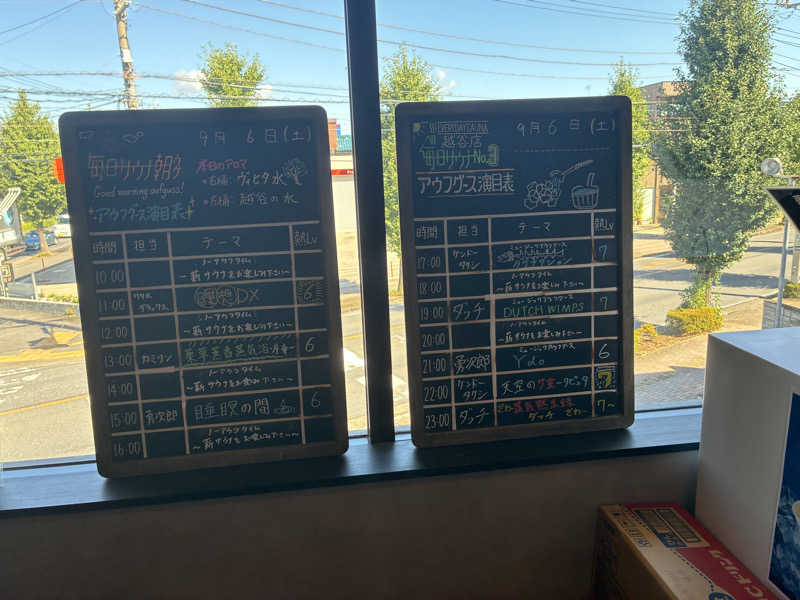 9月6日(土)
毎日サウナ朝子
Good morning aufguss!
アウフグース演目表
本日のアロマ
・右桶:ヴィヒタ水
・左桶:越谷の水
時間 担当 テーマ 熱Lv
10:00 ノーアウフタイム
～薪サウナをお楽しみ下さい～
11:00 DX 6
12:00 ノーアウフタイム
～薪サウナをお楽しみ下さい～
13:00 かミソン 6
14:00 ノーアウフタイム
～薪サウナをお楽しみ下さい～
15:00 勇次郎 睡眠の間 6
16:00 ノーアウフタイム
～薪サウナをお楽しみ下さい～
EVERYDAY SAUNA
越谷店
9月6日(土)
毎日サウナNo.3
アウフグース演目表
時間 担当 テーマ 熱Lv
17:00 サンドータケシ ミュージックアウフグース 7
18:00 ノーアウフタイム
～薪サウナをお楽しみ下さい～
19:00 ダッチ ミュージックアウフグース
DUTCH WIMPS 7
20:00 ノーアウフタイム
～薪サウナをお楽しみ下さい～
21:00 勇次郎 ミュージックアウフグース 6
22:00 7
23:00 ダッチ ダッチ 7～